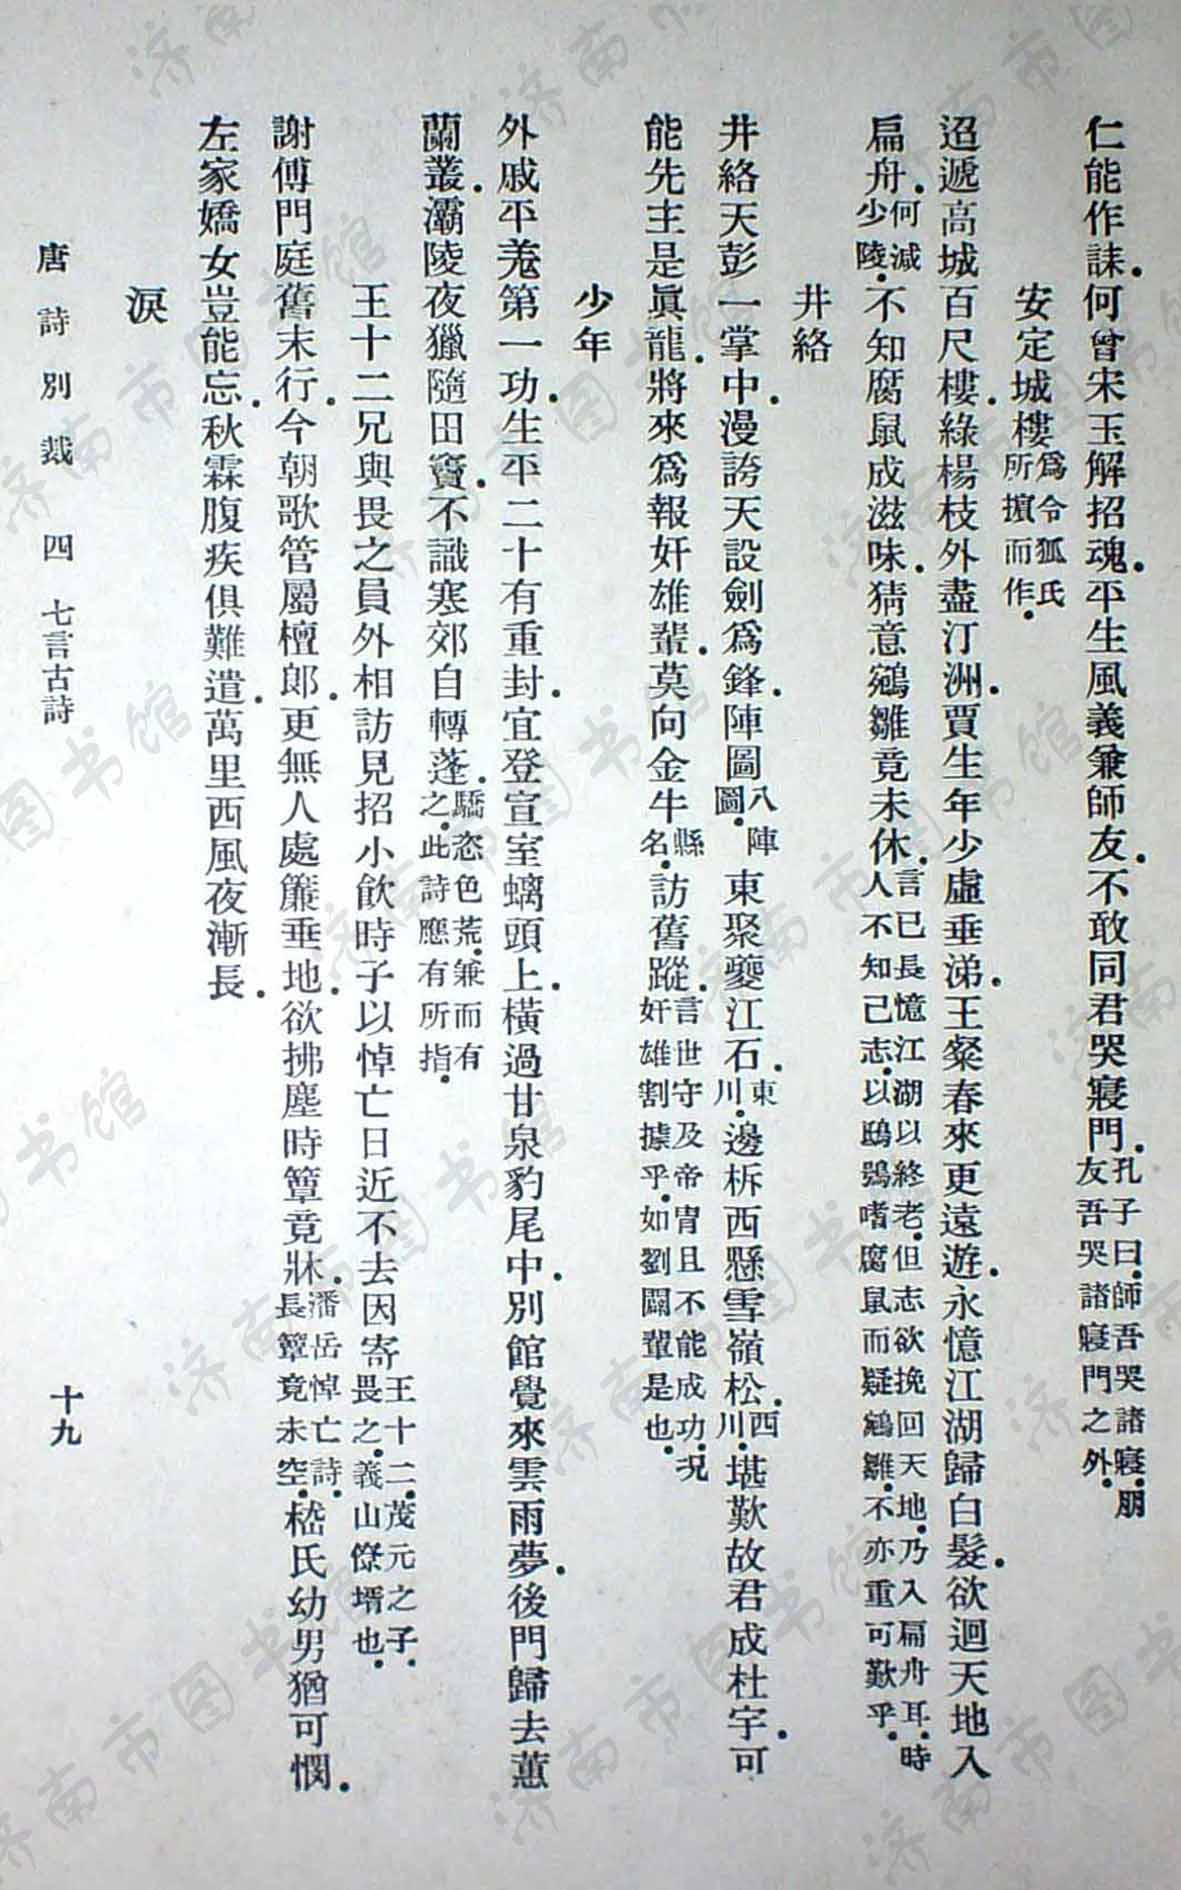 仁能作誄.何曾宋玉解招魂.平生風義兼師友.不敢同君哭寢門.孔子曰.師吾哭諸寢.朋友吾哭諸寢門之外.
安定城樓爲令狐氏所擯而作.
迢遞高城百尺樓.綠楊枝外盡汀洲.賈生年少虛垂涕.王粲春來更遠遊.永憶江湖歸白髮.欲迴天地入
扁舟.何減少陵.不知腐鼠成滋味.猜意鵷雛竟未休.言己長憶江湖以終老.但志欲挽回天地.乃入扁舟耳.時人不知己志.以鴟鴞嗜腐鼠而疑鵷雛.不亦重可歎乎.
井絡
井絡天彭一掌中.漫誇天設劍爲鋒.陣圖八陣圖.東聚夔江石.東川.邊柝西懸雪嶺松.西川.堪歎故君成杜宇.可
能先主是眞龍.將來爲報奸雄輩.莫向金牛縣名.訪舊蹤.言世守及帝胄且不能成功.況奸雄割據乎.如劉闢輩是也.
少年
外戚平羌第一功.生平二十有重封.宜登宣室螭頭上.橫過甘泉豹尾中.別館覺來雲雨夢.後門歸去蕙
蘭叢.灞陵夜獵隨田竇.不識寒郊自轉蓬.驕恣色荒.兼而有之.此詩應有所指.
王十二兄與畏之員外相訪見招小飮時子以悼亡日近不去因寄王十二.茂元之子.畏之.義山僚壻也.
謝傅門庭舊末行.今朝歌管屬檀郎.更無人處簾垂地.欲拂塵時簟竟牀.潘岳悼亡詩.長簟竟未空.嵇氏幼男猶可憫.
左家嬌女豈能忘.秋霖腹疾俱難遣.萬里西風夜漸長.
淚
唐詩別裁 四 七言古詩 十九